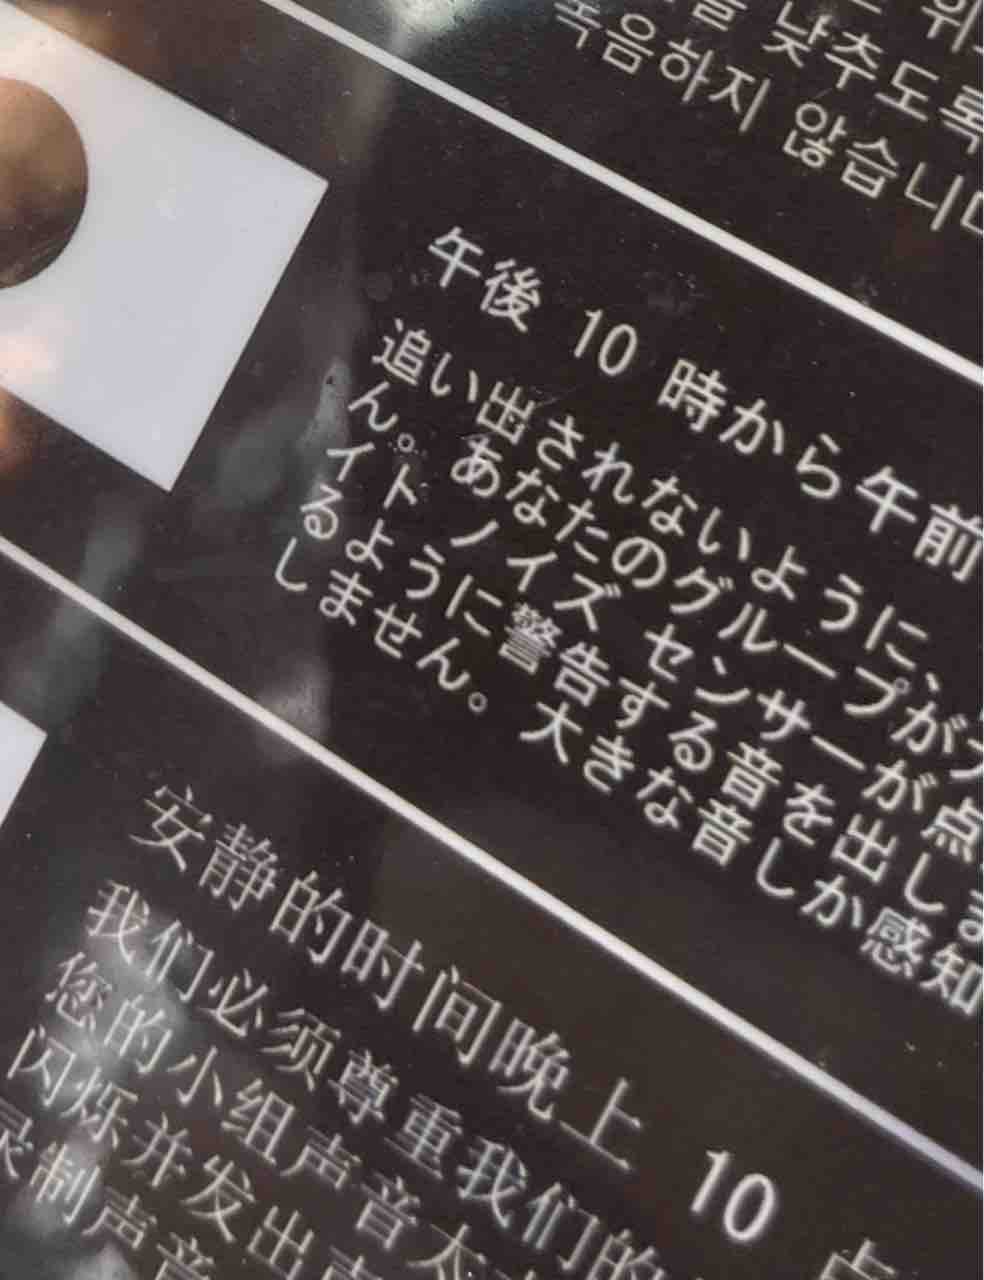 낮추도록
녹음하지 않습니다
午後 10 時から午前
追い出されないように、
ん。 あなたのグループが
イト ノイズ センサーが点
るように警告する音を出しま
しません。 大きな音しか感知
安静的时间晚上 10 点
我们必须尊重我们的
您的小组声音太
闪烁并发出声
录制声音